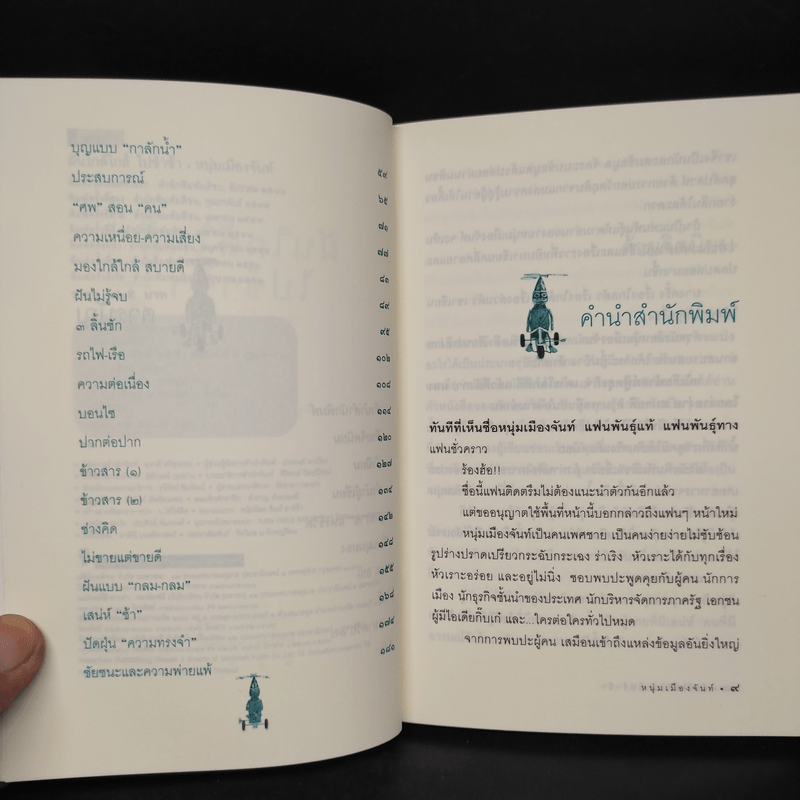 บุญแบบ “กาลักน้ำ” ๕๙
ประสบการณ์ ๖๕
“ศพ” สอน “คน” ๗๑
ความเหนื่อย-ความเสี่ยง ๗๗
มองใกล้ใกล้ สบายดี ๘๓
ฝันไม่รู้จบ ๘๙
๓ ลิ้นชัก ๙๕
รถไฟ-เรือ ๑๐๒
ความต่อเนื่อง ๑๐๘
บอนไซ ๑๑๔
ปากต่อปาก ๑๒๐
ข้าวสาร (๑) ๑๒๗
ข้าวสาร (๒) ๑๓๔
ช่างคิด ๑๔๒
ไม่ขายแต่ขายดี ๑๔๘
ฝันแบบ “กลม-กลม” ๑๕๕
เสน่ห์ “ช้า” ๑๖๘
ปัดฝุ่น “ความทรงจำ” ๑๗๔
ชัยชนะและความพ่ายแพ้ ๑๘๑
คำนำสำนักพิมพ์
ทันทีที่เห็นชื่อหนุ่มเมืองจันท์ แฟนพันธุ์แท้ แฟนพันธุ์ทาง
แฟนชั่วคราว
ร้องฮ้อ!!
ชื่อนี้แฟนติดตรึมไม่ต้องแนะนำตัวกันอีกแล้ว
แต่ขออนุญาตใช้พื้นที่หน้านี้บอกกล่าวถึงแฟนๆ หน้าใหม่
หนุ่มเมืองจันท์เป็นคนเพศชาย เป็นคนง่ายง่ายไม่ซับซ้อน
รูปร่างปราดเปรียวกระฉับกระเฉง ร่าเริง หัวเราะได้กับทุกเรื่อง
หัวเราะอร่อย และอยู่ไม่นิ่ง ชอบพบปะพูดคุยกับผู้คน นักการ
เมือง นักธุรกิจชั้นนำของประเทศ นักบริหารจัดการภาครัฐ เอกชน
ผู้มีไอเดียกิ๊บเก๋ และ...ใครต่อใครทั่วไปหมด
จากการพบปะผู้คน เสมือนเข้าถึงแหล่งข้อมูลอันยิ่งใหญ่
หนุ่มเมืองจันท์ • ๙